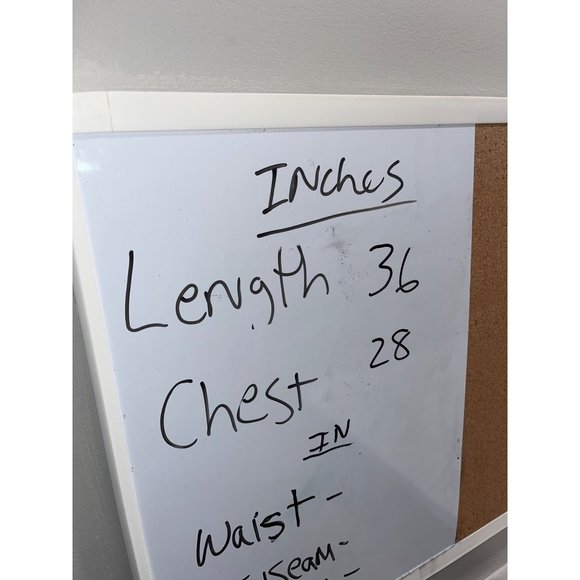 INches
Length 36
Chest 28
IN
Waist -